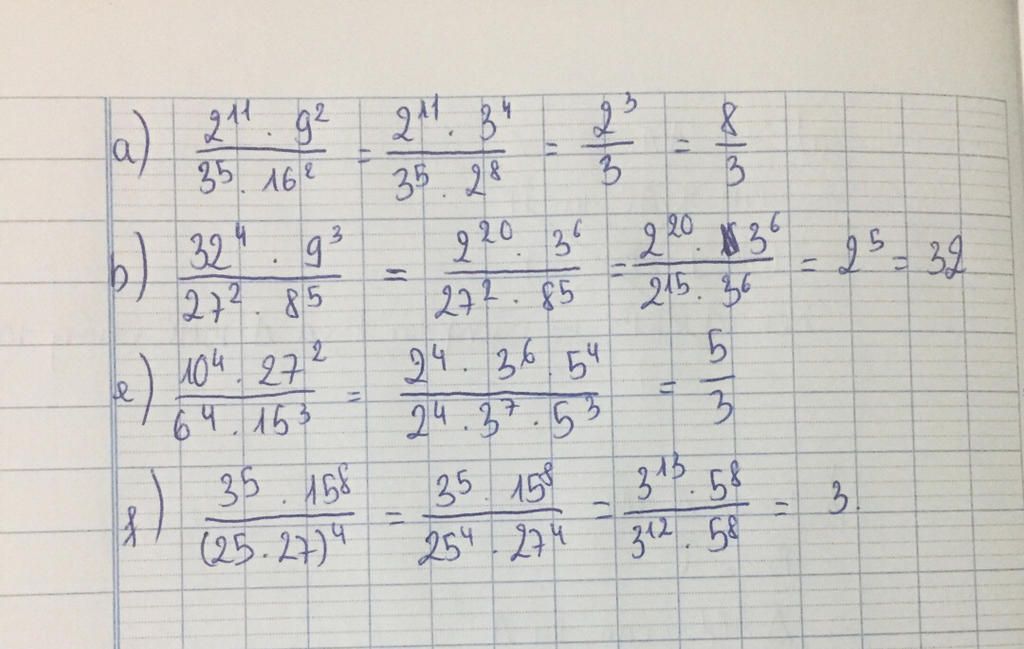 a) \frac{2^{11} \cdot 9^2}{3^5 \cdot 16^2} = \frac{2^{11} \cdot 3^4}{3^5 \cdot 2^8} = \frac{2^3}{3} = \frac{8}{3}
b) \frac{32^4 \cdot 9^3}{27^2 \cdot 8^5} = \frac{2^{20} \cdot 3^6}{27^2 \cdot 8^5} = \frac{2^{20} \cdot 3^6}{2^{15} \cdot 3^6} = 2^5 = 32
e) \frac{10^4 \cdot 27^2}{6^4 \cdot 15^3} = \frac{2^4 \cdot 3^6 \cdot 5^4}{2^4 \cdot 3^7 \cdot 5^3} = \frac{5}{3}
f) \frac{3^5 \cdot 15^8}{(25 \cdot 27)^4} = \frac{3^5 \cdot 15^8}{25^4 \cdot 27^4} = \frac{3^{13} \cdot 5^8}{3^{12} \cdot 5^8} = 3.